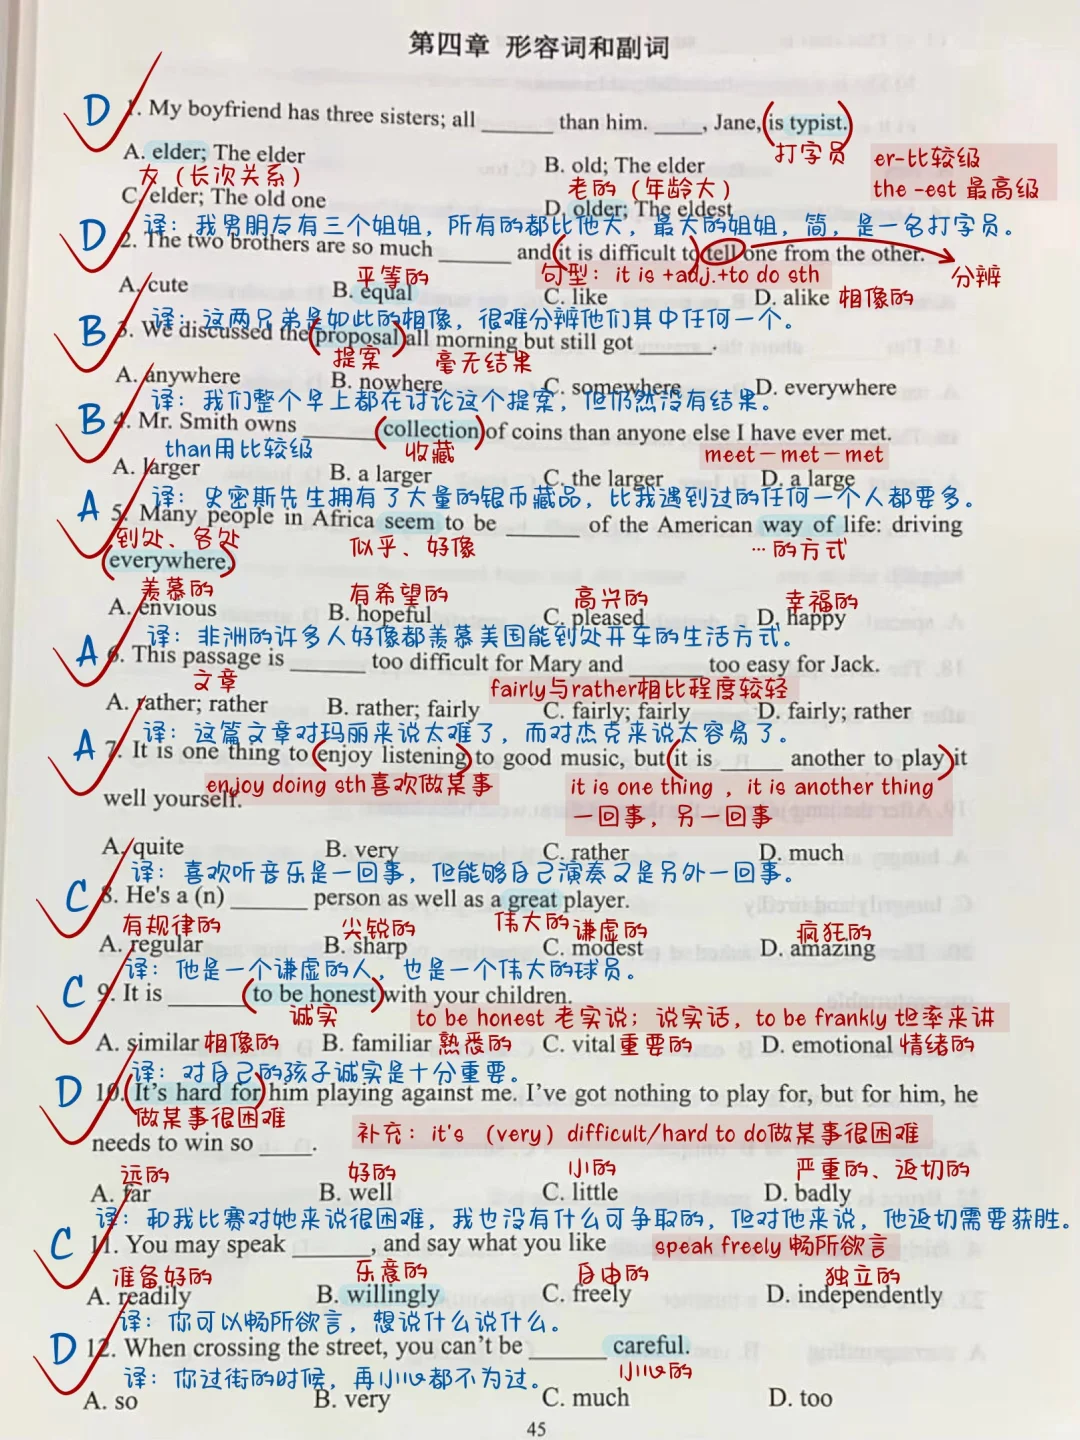 第四章 形容词和副词
D 1. My boyfriend has three sisters; all ______ than him. ____, Jane, is typist.
打字员
A. elder; The elder B. old; The elder
er-比较级
大（长次关系） 老的（年龄大）
the -est 最高级
C. elder; The old one D. older; The eldest
译：我男朋友有三个姐姐，所有的都比他大，最大的姐姐，简，是一名打字员。
D 2. The two brothers are so much ______ and it is difficult to tell one from the other.
平等的 句型：it is +adj.+to do sth 分辨
A. cute B. equal C. like D. alike 相像的
译：这两兄弟是如此的相像，很难分辨他们其中任何一个。
B 3. We discussed the proposal all morning but still got ______.
提案 毫无结果
A. anywhere B. nowhere C. somewhere D. everywhere
译：我们整个早上都在讨论这个提案，但仍然没有结果。
B 4. Mr. Smith owns ______ collection of coins than anyone else I have ever met.
than用比较级 收藏 meet－met－met
A. larger B. a larger C. the larger D. a large
译：史密斯先生拥有了大量的银币藏品，比我遇到过的任何一个人都要多。
A 5. Many people in Africa seem to be ______ of the American way of life: driving
到处、各处 似乎、好像 …的方式
everywhere.
羡慕的 有希望的 高兴的 幸福的
A. envious B. hopeful C. pleased D. happy
译：非洲的许多人好像都羡慕美国能到处开车的生活方式。
A 6. This passage is ______ too difficult for Mary and ______ too easy for Jack.
文章 fairly与rather相比程度较轻
A. rather; rather B. rather; fairly C. fairly; fairly D. fairly; rather
译：这篇文章对玛丽来说太难了，而对杰克来说太容易了。
A 7. It is one thing to enjoy listening to good music, but it is _____ another to play it
enjoy doing sth喜欢做某事 it is one thing , it is another thing
well yourself.
一回事，另一回事
A. quite B. very C. rather D. much
译：喜欢听音乐是一回事，但能够自己演奏又是另外一回事。
C 8. He's a (n) ______ person as well as a great player.
有规律的 尖锐的 伟大的 谦虚的 疯狂的
A. regular B. sharp C. modest D. amazing
译：他是一个谦虚的人，也是一个伟大的球员。
C 9. It is ______ to be honest with your children.
诚实 to be honest 老实说；说实话，to be frankly 坦率来讲
A. similar 相像的 B. familiar 熟悉的 C. vital 重要的 D. emotional 情绪的
译：对自己的孩子诚实是十分重要。
D 10. It’s hard for him playing against me. I’ve got nothing to play for, but for him, he
做某事很困难
needs to win so ____.
补充：it's （very）difficult/hard to do做某事很困难
远的 好的 小的 严重的、迫切的
A. far B. well C. little D. badly
译：和我比赛对她来说很困难，我也没有什么可争取的，但对他来说，他迫切需要获胜。
C 11. You may speak ______, and say what you like
speak freely 畅所欲言
准备好的 乐意的 自由的 独立的
A. readily B. willingly C. freely D. independently
译：你可以畅所欲言，想说什么说什么。
D 12. When crossing the street, you can’t be ______ careful.
译：你过街的时候，再小心都不为过。 小心的
A. so B. very C. much D. too
45